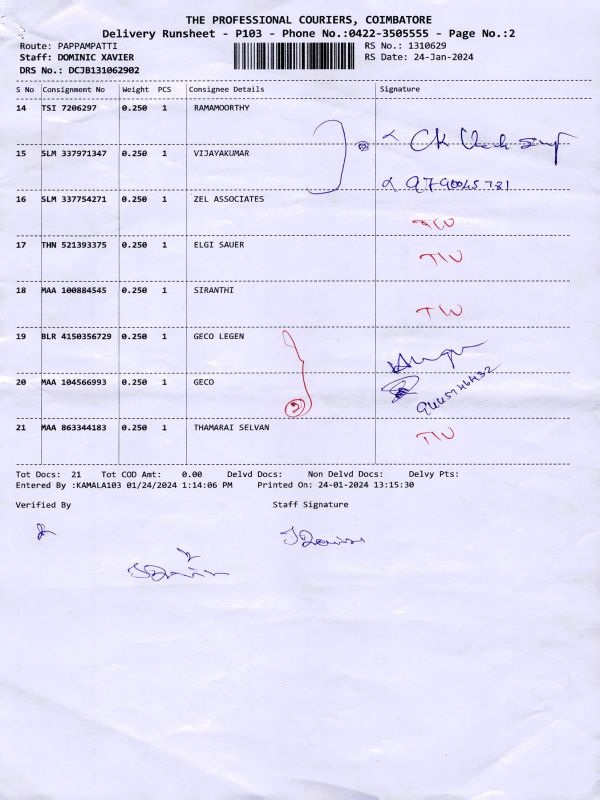 THE PROFESSIONAL COURIERS, COIMBATORE
Delivery Runsheet - P103 - Phone No.:0422-3505555 - Page No.:2
Route: PAPPAMPATTI RS No.: 1310629
Staff: DOMINIC XAVIER RS Date: 24-Jan-2024
DRS No.: DCJB131062902
S No Consignment No Weight PCS Consignee Details Signature
14 TSI 7206297 0.250 1 RAMAMOORTHY
15 SLM 337971347 0.250 1 VIJAYAKUMAR
16 SLM 337754271 0.250 1 ZEL ASSOCIATES
TW
17 THN 521393375 0.250 1 ELGI SAUER
TW
18 MAA 100884545 0.250 1 SIRANTHI
TW
19 BLR 4150356729 0.250 1 GECO LEGEN
20 MAA 104566993 0.250 1 GECO
21 MAA 863344183 0.250 1 THAMARAI SELVAN
TW
Tot Docs: 21 Tot COD Amt: 0.00 Delvd Docs: Non Delvd Docs: Delvy Pts:
Entered By :KAMALA103 01/24/2024 1:14:06 PM Printed On: 24-01-2024 13:15:30
Verified By Staff Signature